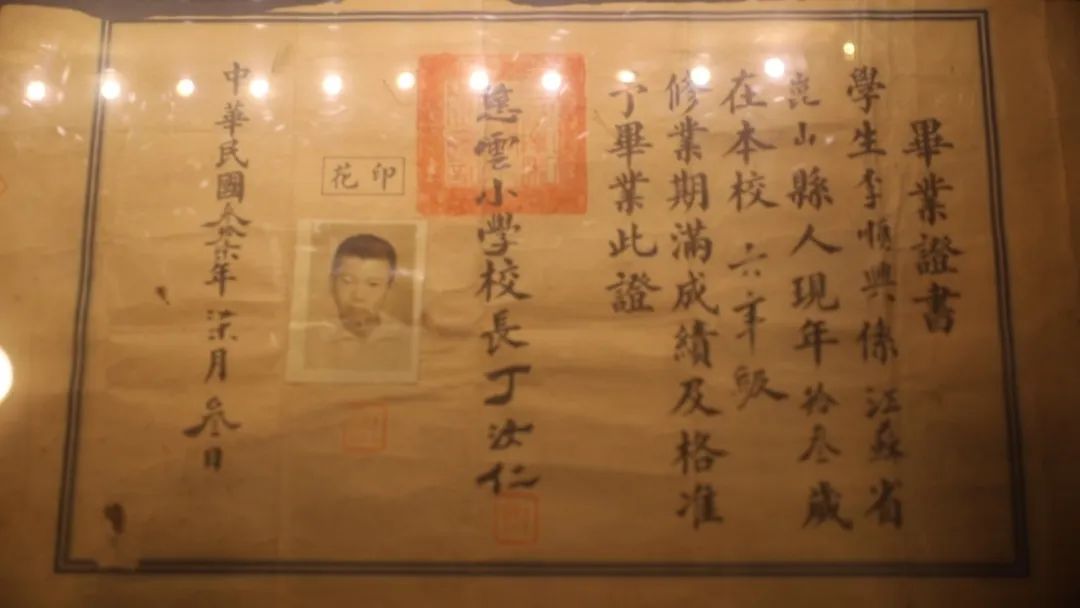 畢業證書
學生李順興係江蘇省
崑山縣人現年拾叁歲
在本校六年級
修業期滿成績及格准
予畢業此證
慈雲小學校長丁汝仁
印花
中華民國叁拾柒年柒月叁日